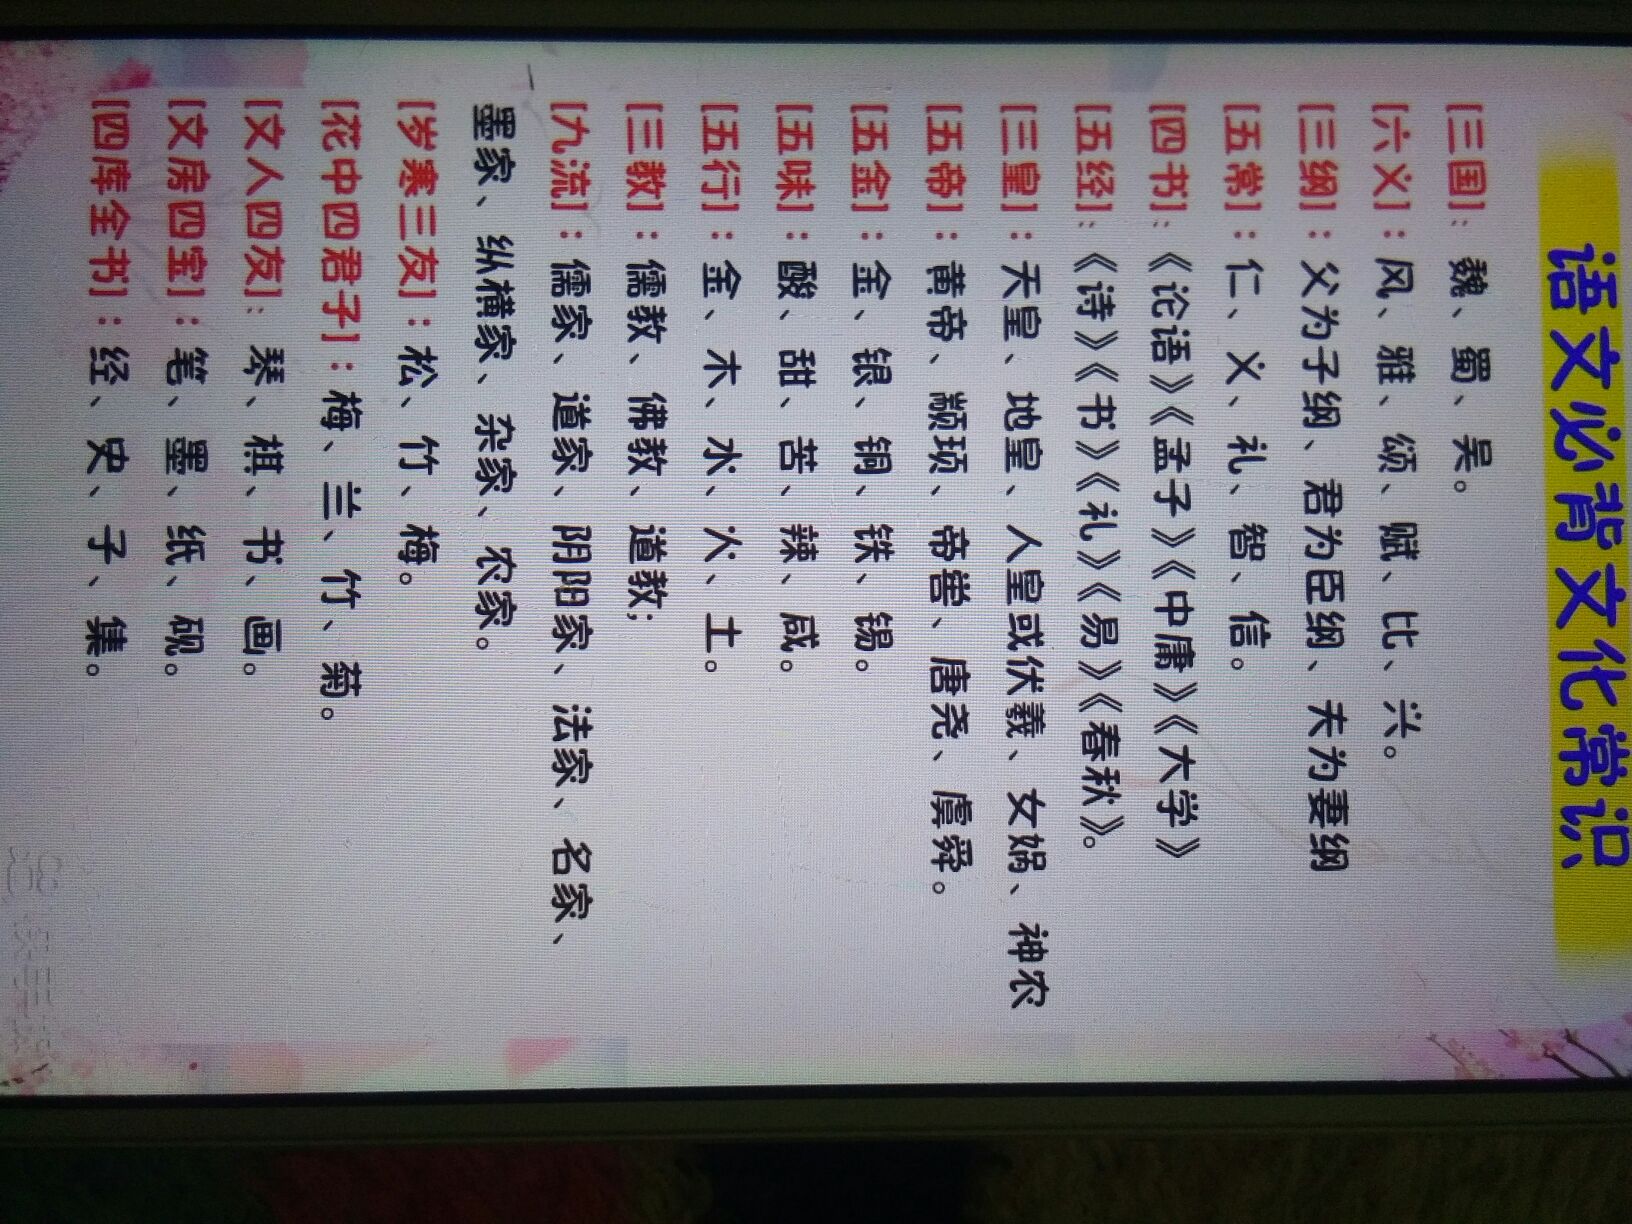 语文必背文化常识
[三国]：魏、蜀、吴。
[六义]：风、雅、颂、赋、比、兴。
[三纲]：父为子纲、君为臣纲、夫为妻纲
[五常]：仁、义、礼、智、信。
[四书]：《论语》《孟子》《中庸》《大学》
[五经]：《诗》《书》《礼》《易》《春秋》。
[三皇]：天皇、地皇、人皇或伏羲、女娲、神农
[五帝]：黄帝、颛顼、帝喾、唐尧、虞舜。
[五金]：金、银、铜、铁、锡。
[五味]：酸、甜、苦、辣、咸。
[五行]：金、木、水、火、土。
[三教]：儒教、佛教、道教；
[九流]：儒家、道家、阴阳家、法家、名家、
墨家、纵横家、杂家、农家。
[岁寒三友]：松、竹、梅。
[花中四君子]：梅、兰、竹、菊。
[文人四友]：琴、棋、书、画。
[文房四宝]：笔、墨、纸、砚。
[四库全书]：经、史、子、集。